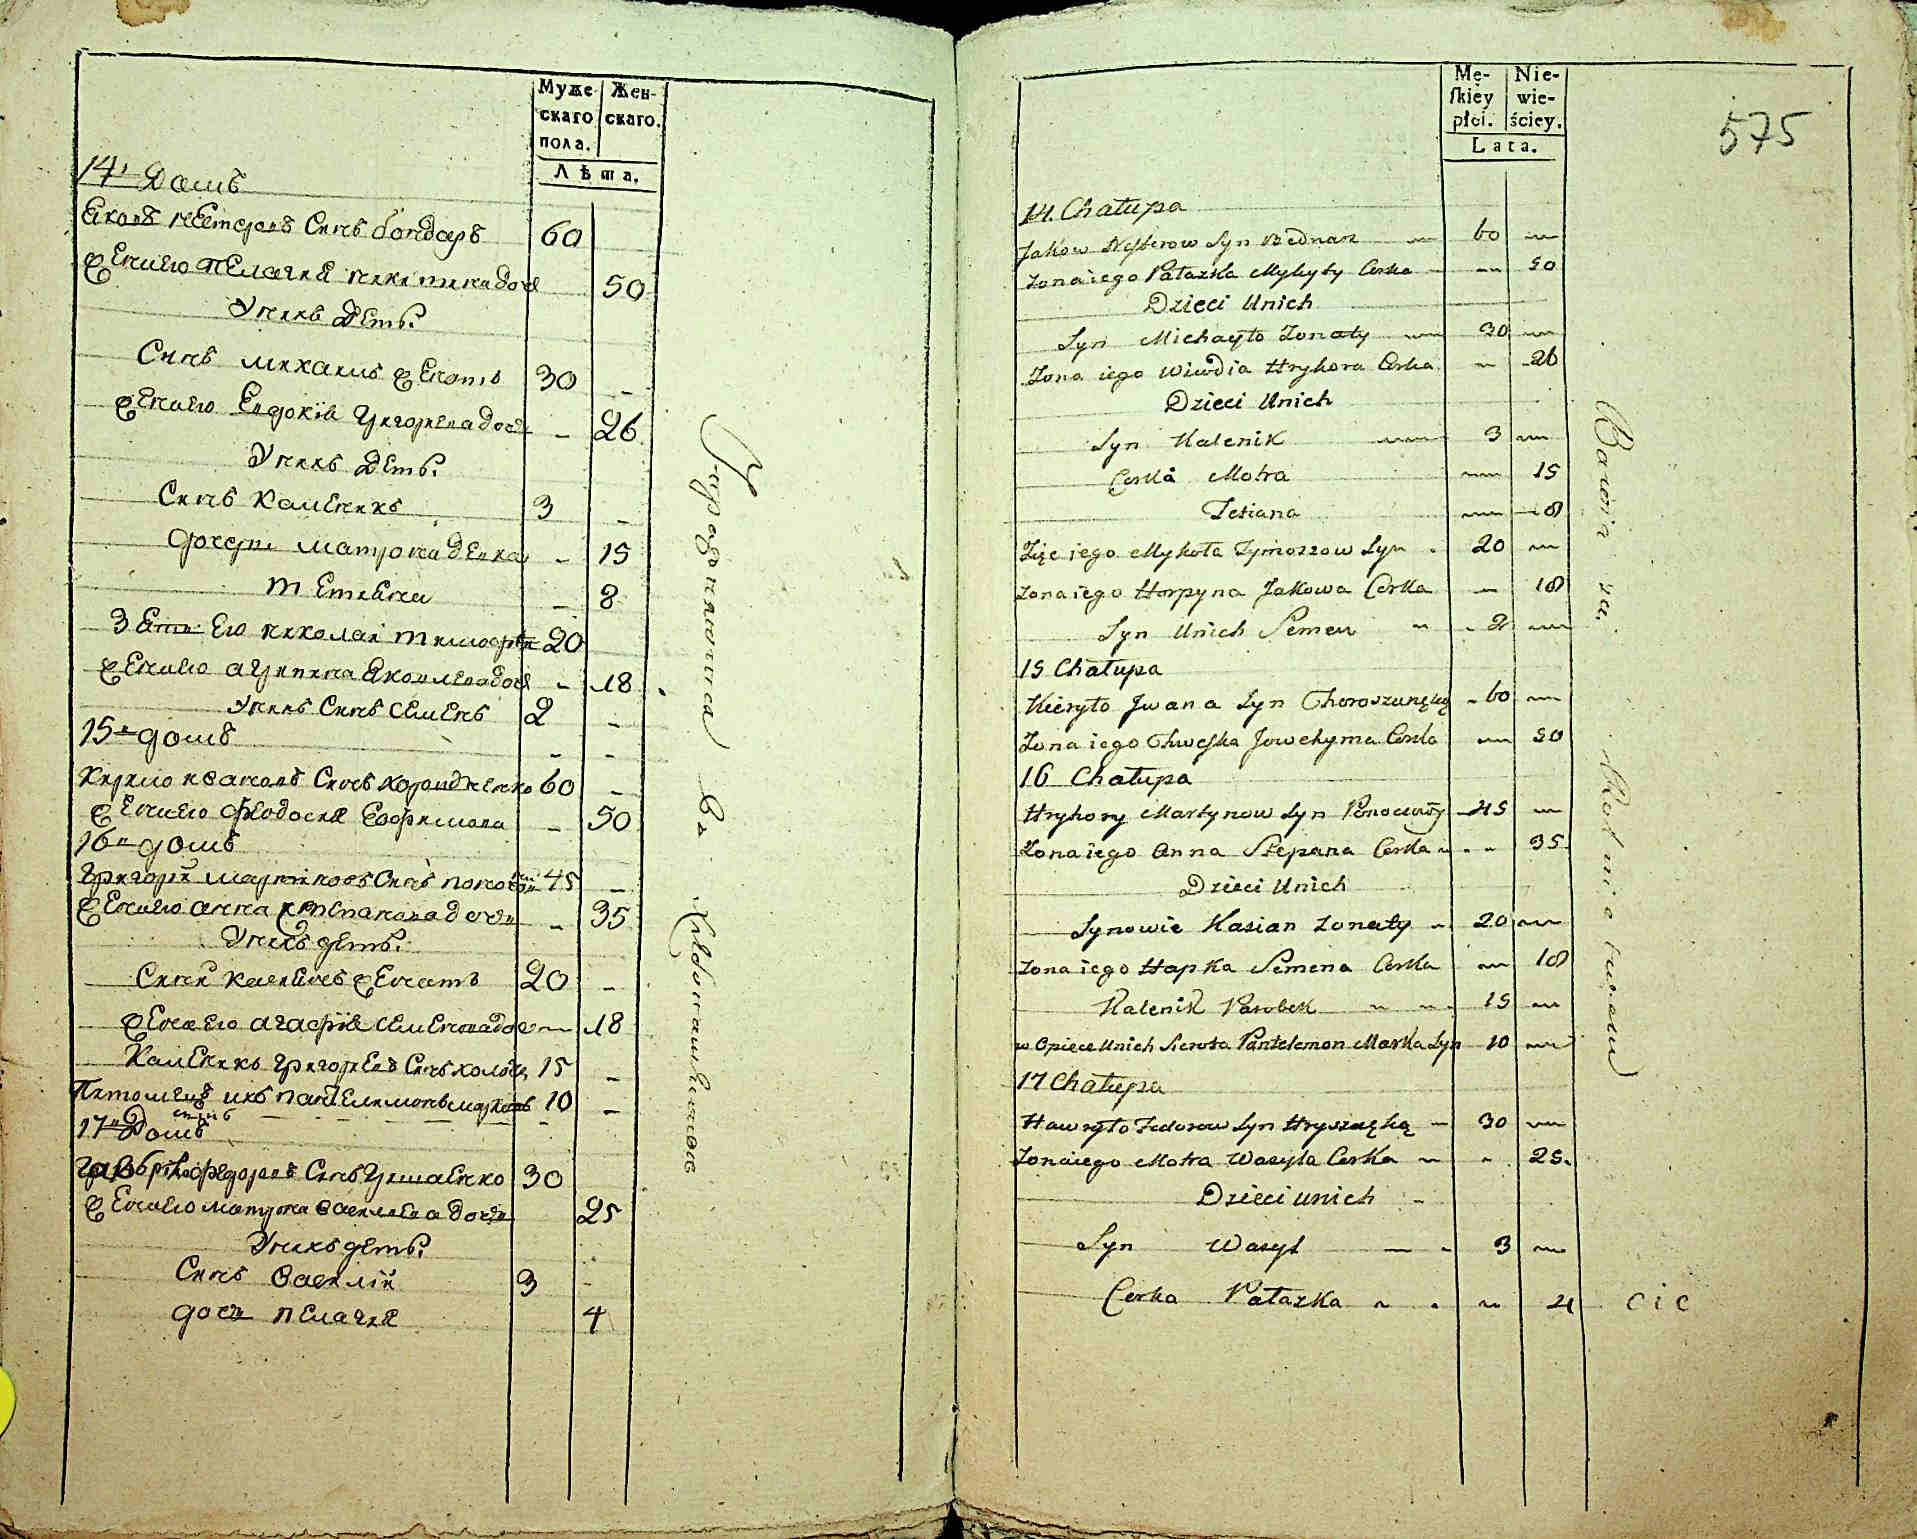 Муже-
скаго
пола.
Жен-
скаго.
Лѣта.
14 Домъ
Яковъ Нестеровъ Синъ бондаръ 60
Жена его Пелагия Никитина доч 50
У нихъ дети:
Синъ Михаилъ женатъ 30 –
Жена его Евдокія Григориева доч – 26
У нихъ дети:
Синъ Каленикъ 3 –
дочери Матрона девка – 15
Тетяна – 8
Зять его Николай 20
Жена его Агрипина Яковлева доч – 18
У нихъ Синъ Семенъ 2 –
15 домъ – –
Кирило Ивановъ Синъ 60 –
Жена его Феодосия Ефимова – 50
16 домъ
Григорій Мартиновъ Синъ 45 –
Жена его Анна Степанова дочь – 35
У нихъ дети:
Сини Касиянъ женатъ 20 –
Жена его Агафия Семенова доч – 18
Каленикъ Григориевъ Синъ 15 –
Питомецъ ихъ Пантелемонъ Марковъ 10 –
синъ
17 Домъ
Гаврило Федоровъ Синъ Гришаенко 30
Жена его Матрона Василева дочь 25
У нихъ дети:
Синъ Василій 3 –
дочь Пелагия 4
Mę-
skiey
płci.
Nie-
wie-
ściey.
Lata.
575
14. Chałupa
Jakow Nesterow Syn Bednarz 60
Zona iego Pałazka Mykyty Corka 50
Dzieci Unich
Syn Michayło Zonaty 30
Zona iego Wiwdia Hryhora Corka 26
Dzieci Unich
Syn Kalenik 3
Corka Motra 15
Tetiana 8
Zięc iego Mykoła Tymoszow Syn 20
Zona iego Horpyna Jakowa Corka 18
Syn Unich Semen 2
15 Chałupa
Kieryło Jwana Syn 60
Zona iego Chweska Jowchyma Corka 50
16 Chałupa
Hryhory Martynow Syn 45
Zona iego Anna Stepana Corka 35
Dzieci Unich
Synowie Kasian Zonaty 20
Zona iego Hapka Semena Corka 18
Kalenik Parobek 15
w Opiece Unich Sierota Pantelemon Marka Syn 10
17 Chałupa
Hawryło Fedorow Syn 30
Zona iego Motra Wasyla Corka 25
Dzieci unich
Syn Wasyl 3
Corka Pałazka 4
cic